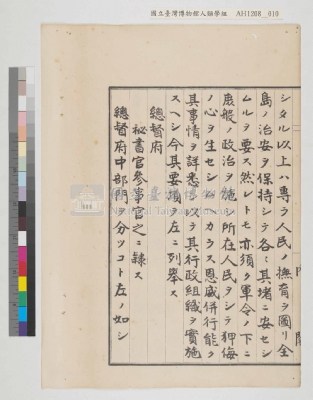 國立臺灣博物館人類學組 AH1208_010
シタル以上ハ專ラ人民ノ撫育ヲ圖リ全
島ノ治安ヲ保持シテ各〻其堵ニ安セシ
ムルヲ要ス然レトモ亦須ク軍令ノ下ニ
庶般ノ政治ヲ施シ所在人民ヲシテ狎侮
ノ心ヲ生セシムヘカラス恩威併行能ク
其事情ヲ詳悉シ以テ其行政組織ヲ實施
スヘシ今其要領ヲ左ニ列舉ス
總督府
祕書官參事官之ニ隷ス
總督府中部門ヲ分ツコト左ノ如シ
內閣